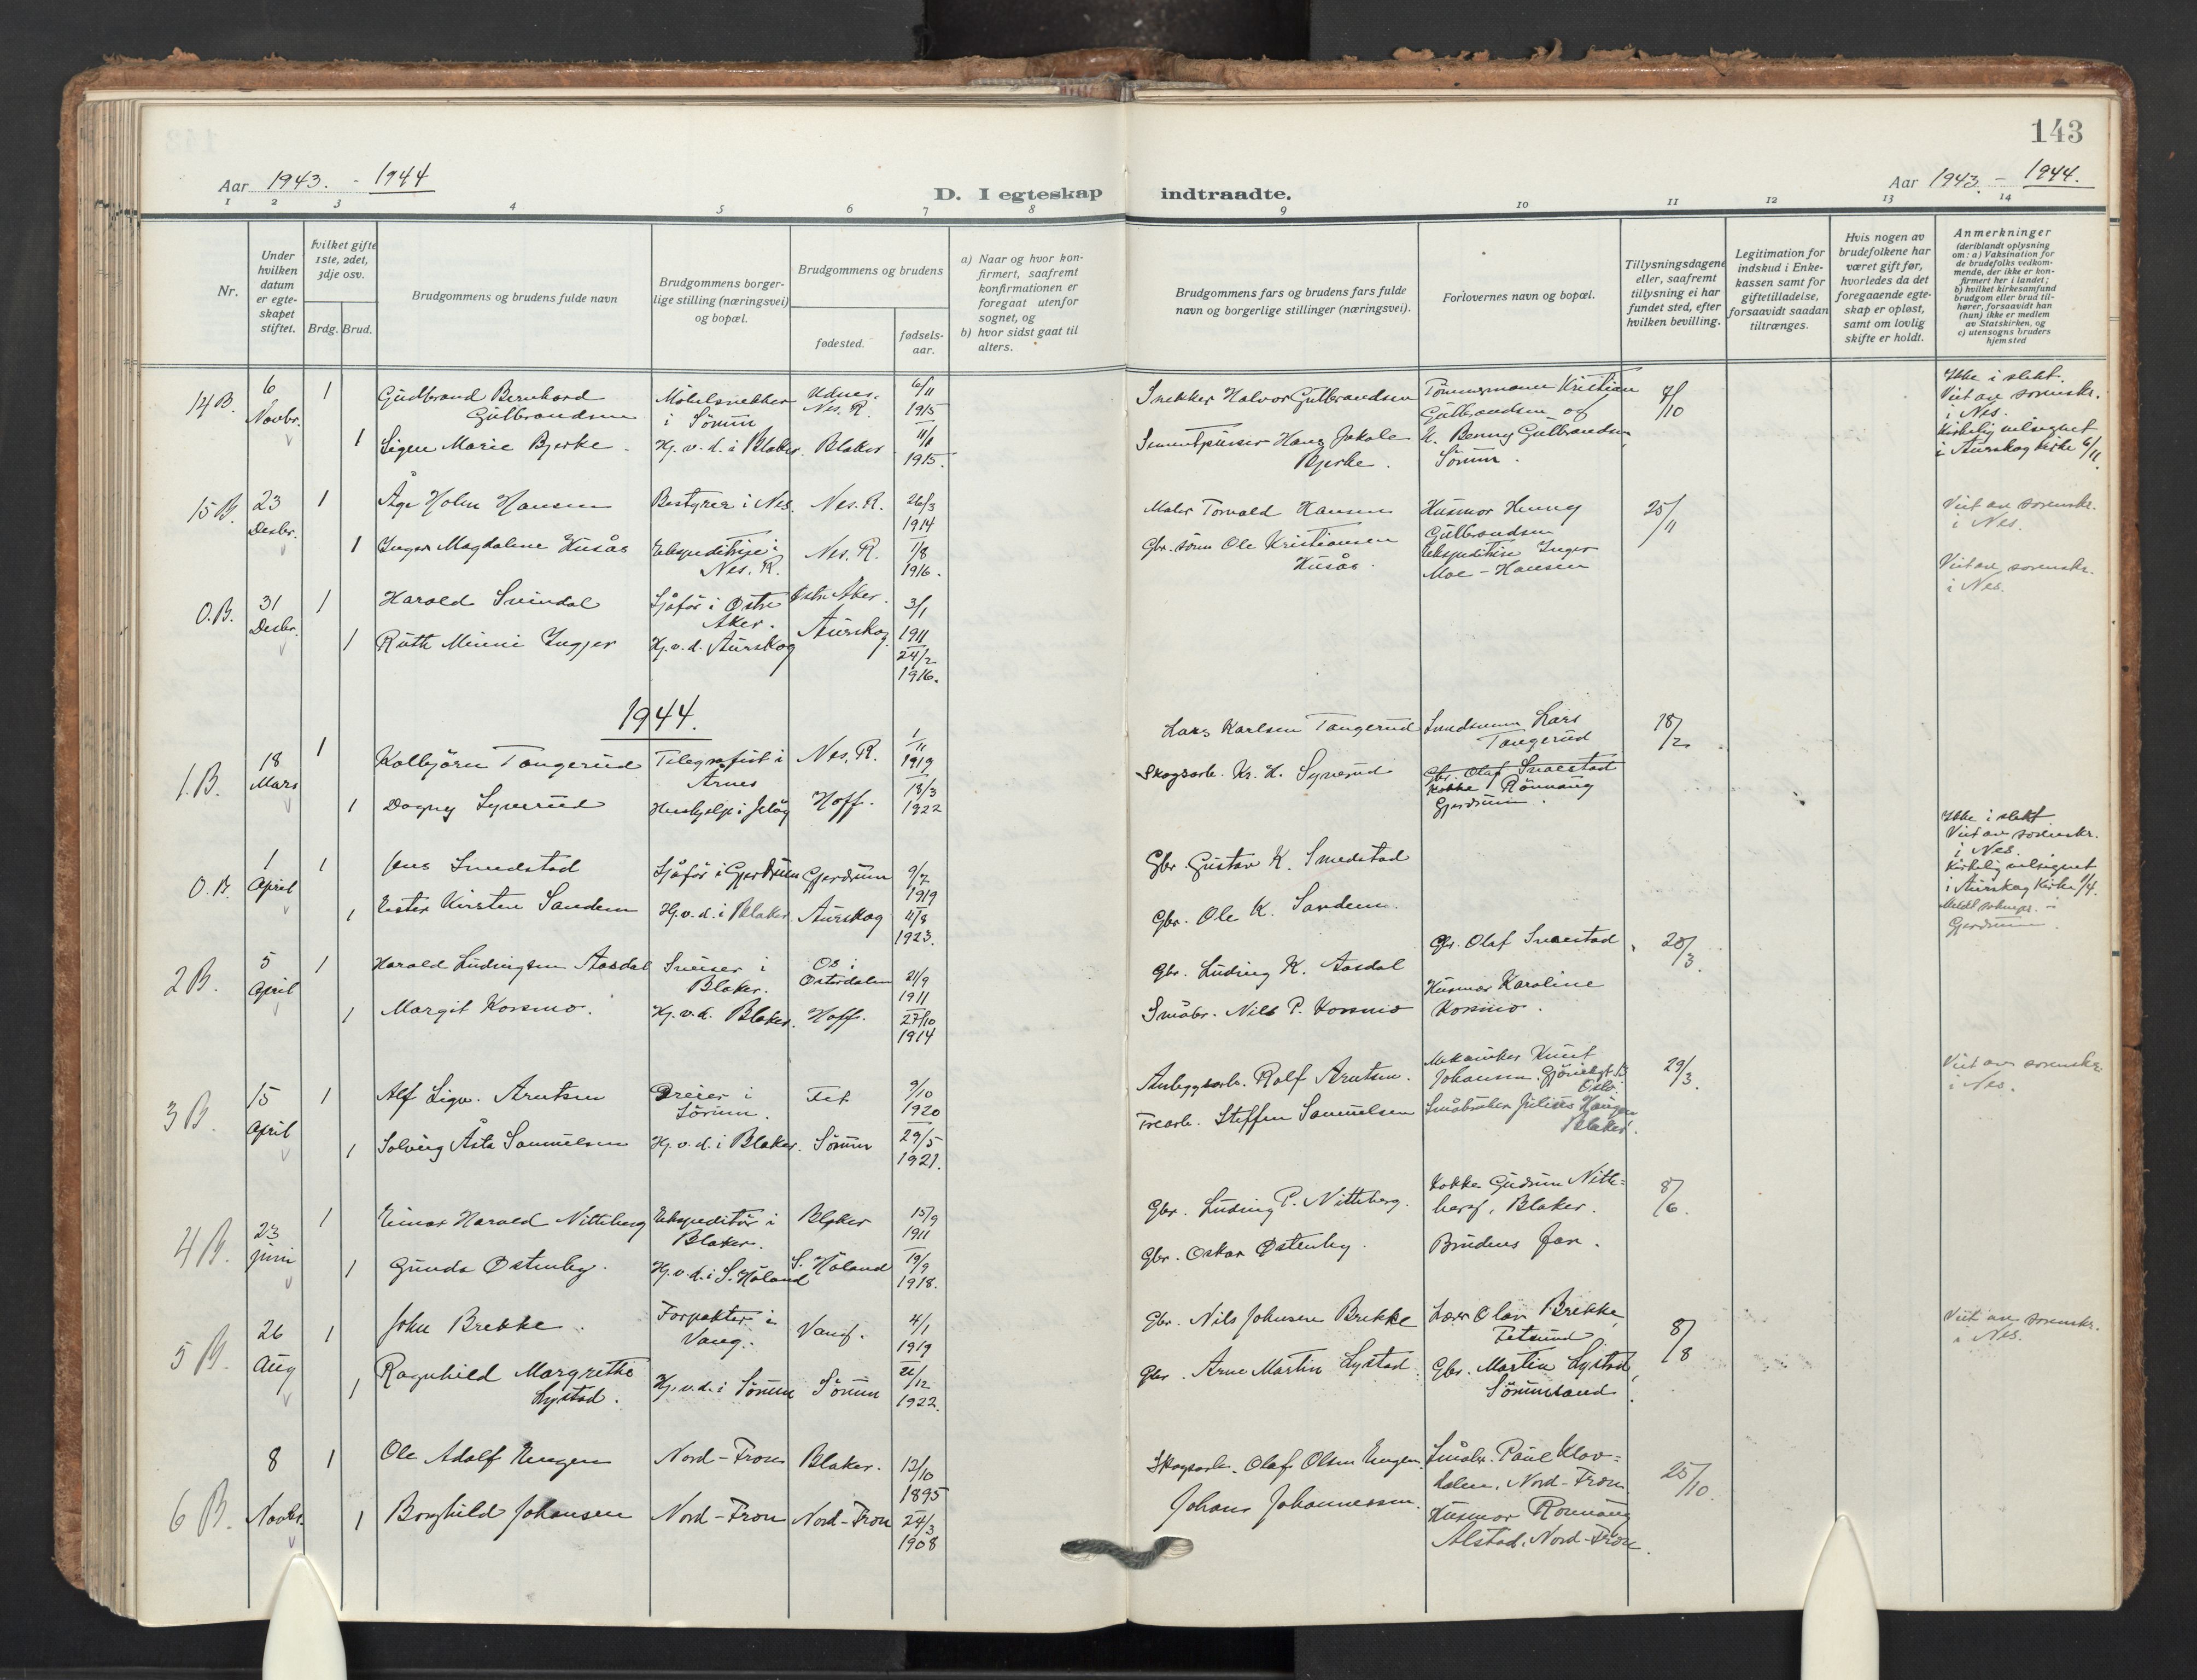 143
Aar 1943. - 1944
D. I egteskap indtraadte.
Aar 1943. - 1944.
1 2 3 4 5 6 7 8 9 10 11 12 13 14
Nr.
Under hvilken datum er egteskapet stiftet.
hvilket gifte 1ste, 2det, 3dje osv.
Brdg. Brud.
Brudgommens og brudens fulde navn
Brudgommens borgerlige stilling (næringsvei) og bopæl.
Brudgommens og brudens
fødested.
fødselsaar.
a) Naar og hvor konfirmert, saafremt konfirmationen er foregaat utenfor sognet, og
b) hvor sidst gaat til alters.
Brudgommens fars og brudens fars fulde navn og borgerlige stillinger (næringsvei).
Forlovernes navn og bopæl.
Tillysningsdagene eller, saafremt tillysning ei har fundet sted, efter hvilken bevilling.
Legitimation for indskud i Enkekassen samt for giftetilladelse, forsaavidt saadan tiltrænges.
Hvis nogen av brudefolkene har været gift før, hvorledes da det foregaaende egteskap er opløst, samt om lovlig skifte er holdt.
Anmerkninger
(deriblandt oplysning om: a) Vaksination for de brudefolks vedkommende, der ikke er konfirmert her i landet; b) hvilket kirkesamfund brudgom eller brud tilhører, forsaavidt han (hun) ikke er medlem av Statskirken, og c) utensogns bruders hjemsted
14 B. 6 Novbr. 1 Gudbrand Bernhard Gulbrandsen Möbelsnekker i Sörum Udnes, Nes. R. 6/11 1915 Snekker Halvor Gulbrandsen Tömmermann Kristian Gulbrandsen og 7/10 Ikke i slekt. Viet av sorenskr. i Nes. Kirkelig velsignet i Aurskog kirke 6/11.
1 Signe Marie Bjerke. Hj.v.d. i Blaker. Blaker 11/11 1915. Hans Jakob Bjerke. H. Benny Gulbrandsen, Sörum.
15 B. 23 Desbr. 1 Åge Holm Hansen Bestyrer i Nes. Nes. R. 26/3 1914 Maler Torvald Hansen Husmor Henny Gulbrandsen 25/11 Viet av sorenskr. i Nes.
1 Inger Magdalene Husås Ekspeditrise i Nes. R. Nes. R. 1/8 1916. Gbr. sönn Ole Kristiansen Husås. Ekspeditrise Inger Moe-Hansen
0.B. 31 Desbr. 1 Harald Svindal Sjåför i Östre Aker. Östre Aker. 3/1 1911 Viet av sorenskr. i Nes.
1 Ruth Minni Ingjer Hj.v.d. Aurskog Aurskog. 24/2 1916.
1944.
1.B. 18 Mars 1 Kolbjörn Tangerud Telegrafist i Årnes Nes. R. 1/11 1919 Lars Karlsen Tangerud Lars Tangerud 18/2
1 Dagny Syverud Hushjelp i Hoff. 18/3 1922 Skogsarb. Kr. H. Syverud Gbr. Olaf Kokke Rönnaug Gjerdrum.
0.B. 1 April 1 Jens Smedstad Sjåför i Gjerdrum Gjerdrum 9/7 1919 Gbr. Gustav K. Smedstad Ikke i slekt Viet av sorenskr. i Nes. Kirkelig velsignet i Aurskog kirke 1/4. Gjerdrum.
1 Ester Kirsten Sandem Hj.v.d. i Blaker Aurskog 11/8 1923. Gbr. Ole K. Sandem.
2 B. 5 April 1 Harald Ludvigsen Aasdal i Blaker. Os i Österdalen 21/9 1911 Gbr. Ludvig K. Aasdal Gbr. Olaf 20/3.
1 Margit Korsmo. Hj.v.d. Blaker. Hoff. 27/10 1914 Småbr. Nils P. Korsmo Husmor Karoline Korsmo.
3 B. 15 April 1 Alf Sigv. Arntsen Dreier i Sörum. Fet 9/10 1920 Anleggsarb. Rolf Arntsen. Mekaniker Knut Johansen. Oslo 29/3. Viet av sorenskr. i Nes.
1 Solveig Åsta Samuelsen Hj.v.d. i Blaker. Sörum 29/5 1921. Trearb. Steffen Samuelsen Småbruker Julius Haugen Blaker.
4 B. 23 juni 1 Einar Harald Nitteberg Ekspeditör i Blaker. Blaker 15/9 1911 Gbr. Ludvig P. Nitteberg. Kokke Gudrun Nitteberg, Blaker. 8/6.
1 Gunda Östenby. Hj.v.d. i S. Höland S. Höland 19/9 1918. Gbr. Oskar Östenby. Brudens far.
5 B. 26 Aug 1 John Brekke. Forpakter i Vang. Vang. 4/1 1919 Gbr. Nils Johnsen Brekke Lærer Olav Brekke, Fetsund 8/8 Viet av sorenskr. i Nes.
1 Ragnhild Margrethe Lystad. Hj.v.d. i Sörum Sörum /12 1922. Gbr. Arne Martin Lystad. Gbr. Martin Lystad, Sörumsand.
6 B. 8 Novbr. 1 Ole Adolf Engen Nord-Fron Blaker. 12/10 1895 Skogsarb. Olaf Olsen Engen. Småbr. Paul Nord-Fron 25/10.
1 Borghild Johansen Nord-Fron Nord-Fron 24/3 1908 Johans Johannessen. Husmor Rönnaug Alstad. Nord-Fron.